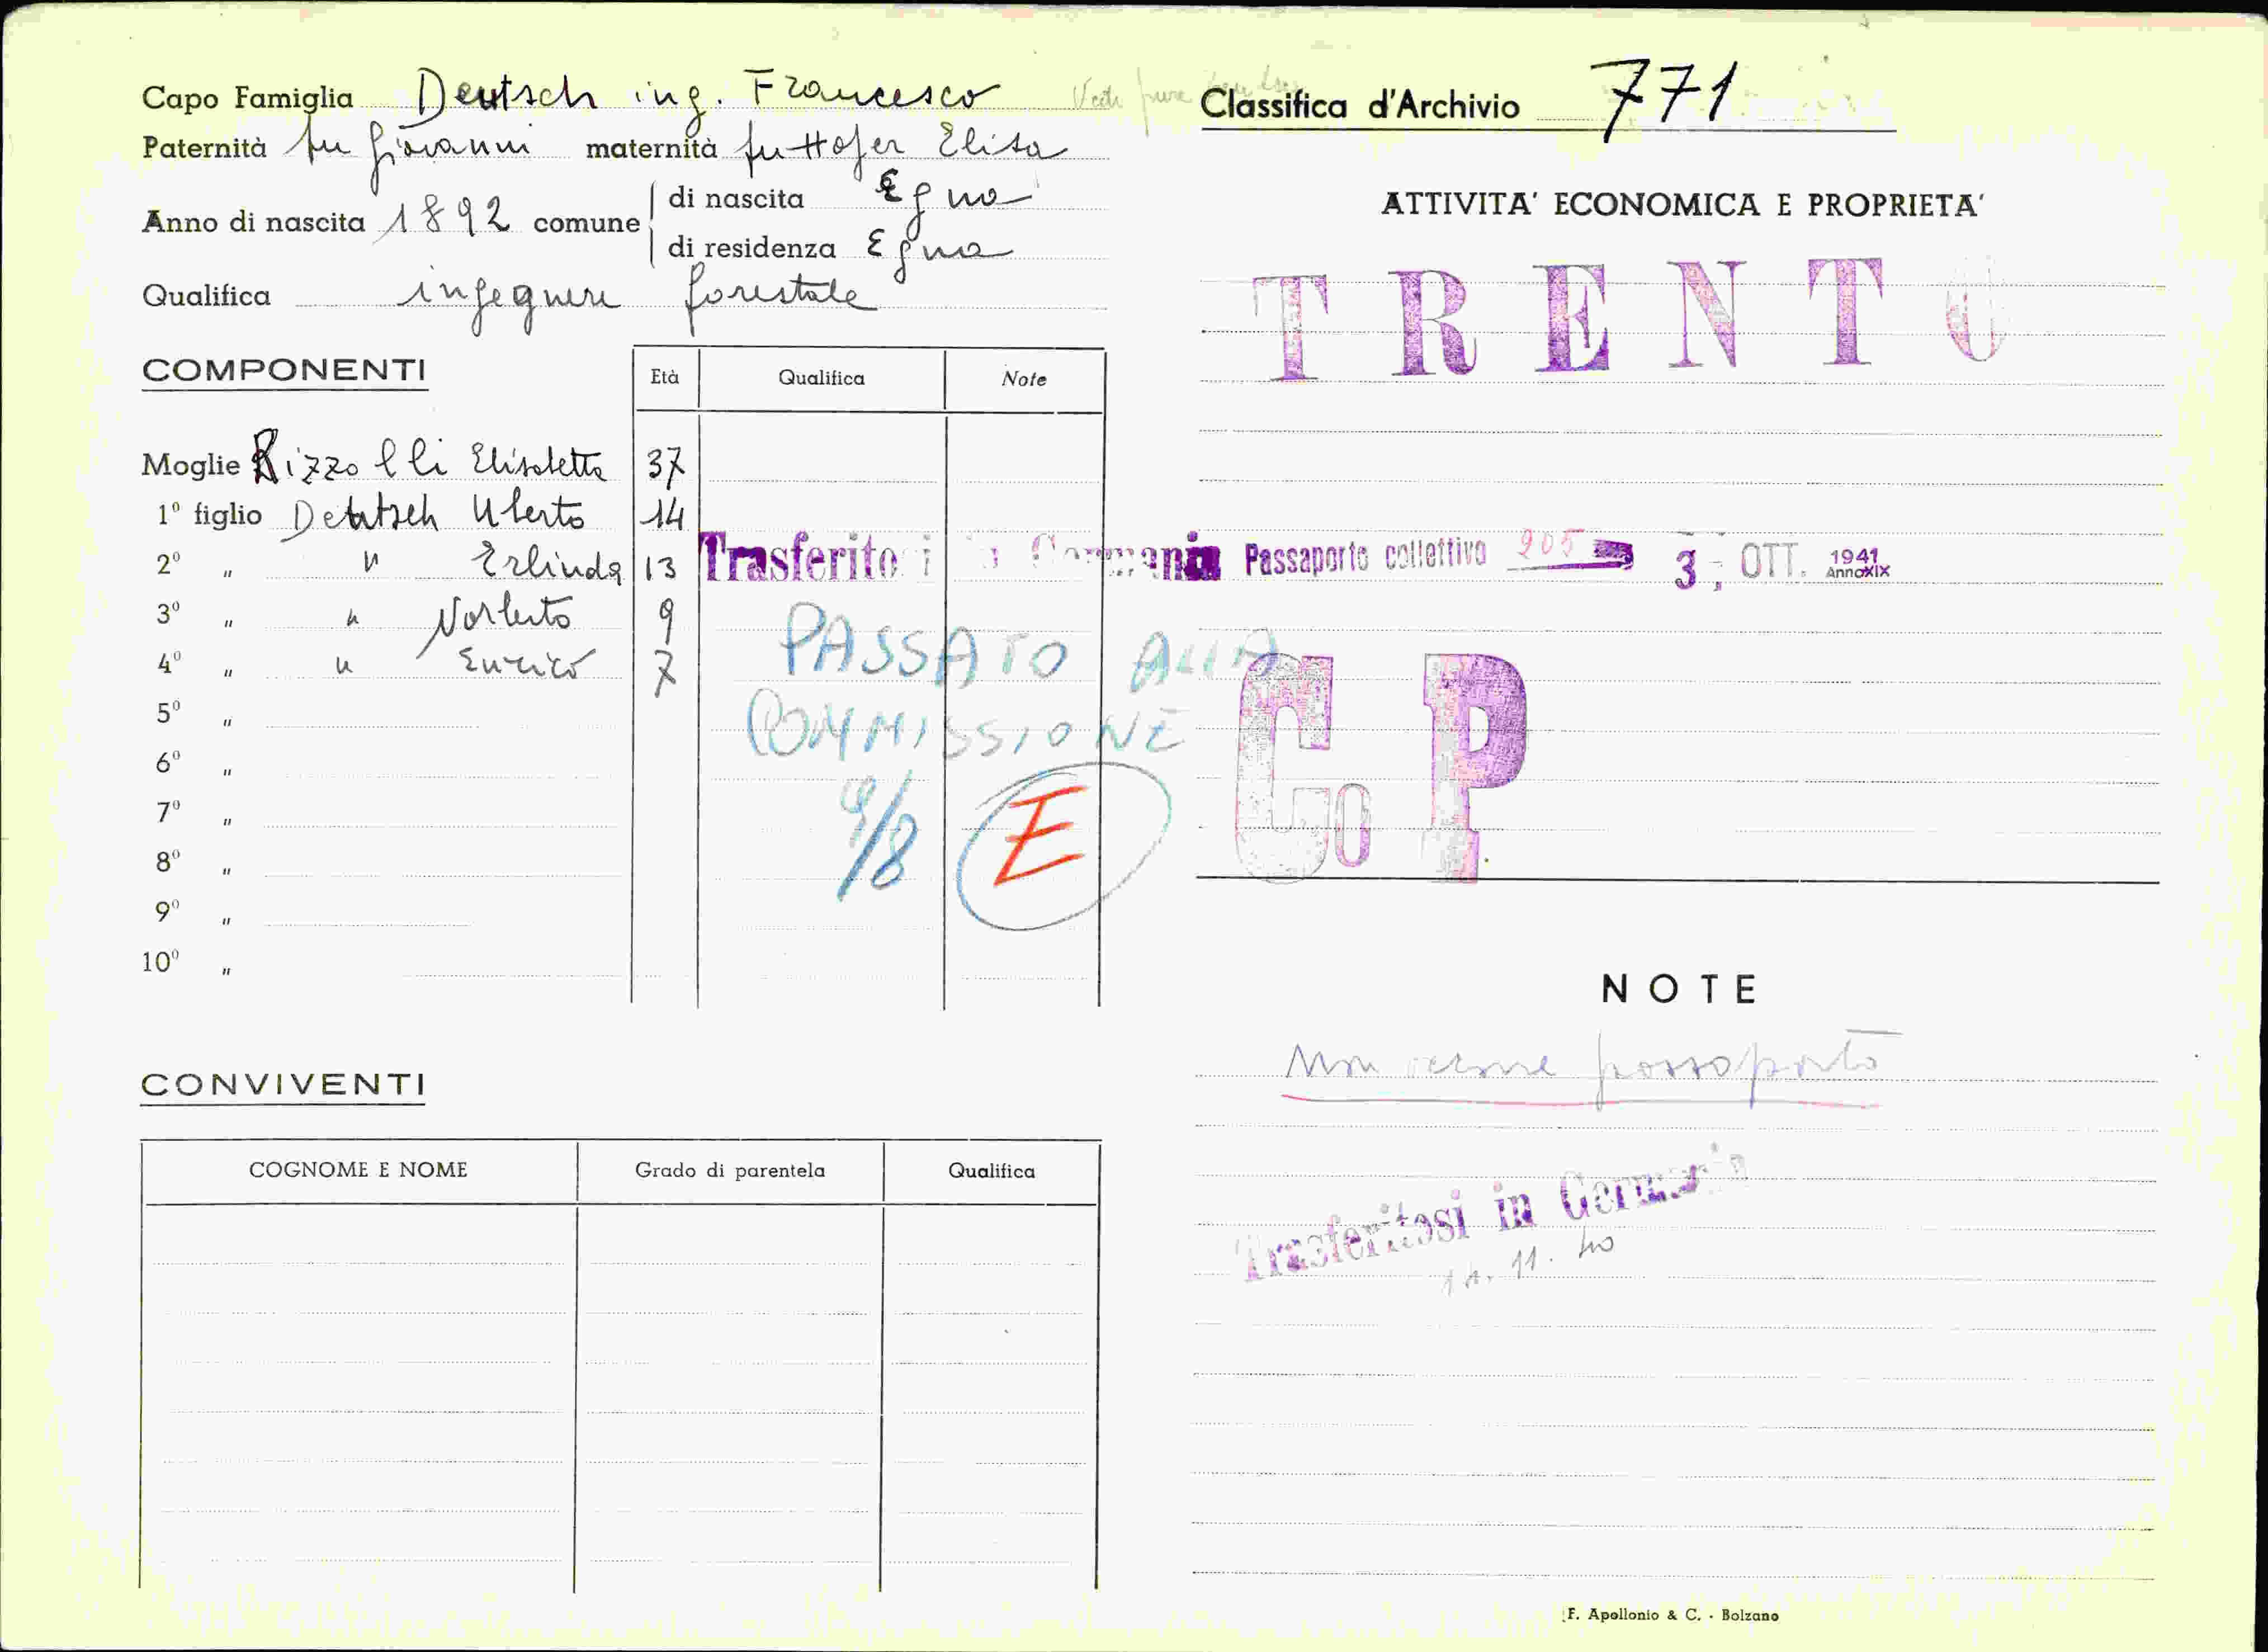 Capo Famiglia Deutsch ing. Francesco
Paternità fu Giovanni maternità Huttofer Elisa
Anno di nascita 1892 comune di nascita Egna
di residenza Egna
Qualifica ingegnere forestale
COMPONENTI Età Qualifica Note
Moglie Rizzolli Elisabetta 37
1º figlio Deutsch Uberto 14
2º " " Erlinda 13
3º " " Norberto 9
4º " " Enrico 7
5º "
6º "
7º "
8º "
9º "
10º "
Trasferito i in Germania Passaporto collettivo 205 3, OTT. 1941 Anno XIX
PASSATO ALLA
COMMISSIONE
9/8 E
CONVIVENTI
COGNOME E NOME Grado di parentela Qualifica
Vedi pure
Classifica d'Archivio 771
ATTIVITA' ECONOMICA E PROPRIETA'
TRENTO
Co P
NOTE
Non passaporto
Trasferitosi in Germania
11. 40
F. Apollonio & C. - Bolzano